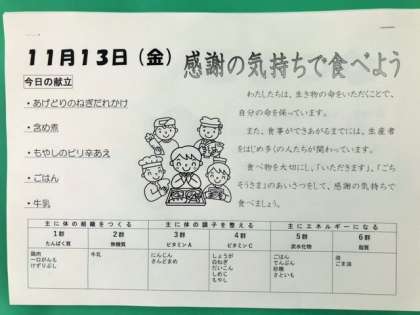 11月13日（金）
感謝の気持ちで食べよう
今日の献立
・あげどりのねぎだれかけ
・含め煮
・もやしのピリ辛あえ
・ごはん
・牛乳
わたしたちは、生き物の命をいただくことで、
自分の命を保っています。
また、食事ができあがるまでには、生産者
をはじめ多くの人たちが関わっています。
食べ物を大切にし、「いただきます」、「ごち
そうさま」のあいさつをして、感謝の気持ちで
食べましょう。
主に体の組織をつくる 主に体の調子を整える 主にエネルギーになる
1群 2群 3群 4群 5群 6群
たんぱく質 無機質 ビタミンA ビタミンC 炭水化物 脂質
鶏肉 牛乳 にんじん しょうが ごはん 油
一口がんも さんどまめ 白ねぎ でんぷん ごま油
けずりぶし だいこん 砂糖
しめじ さといも
もやし